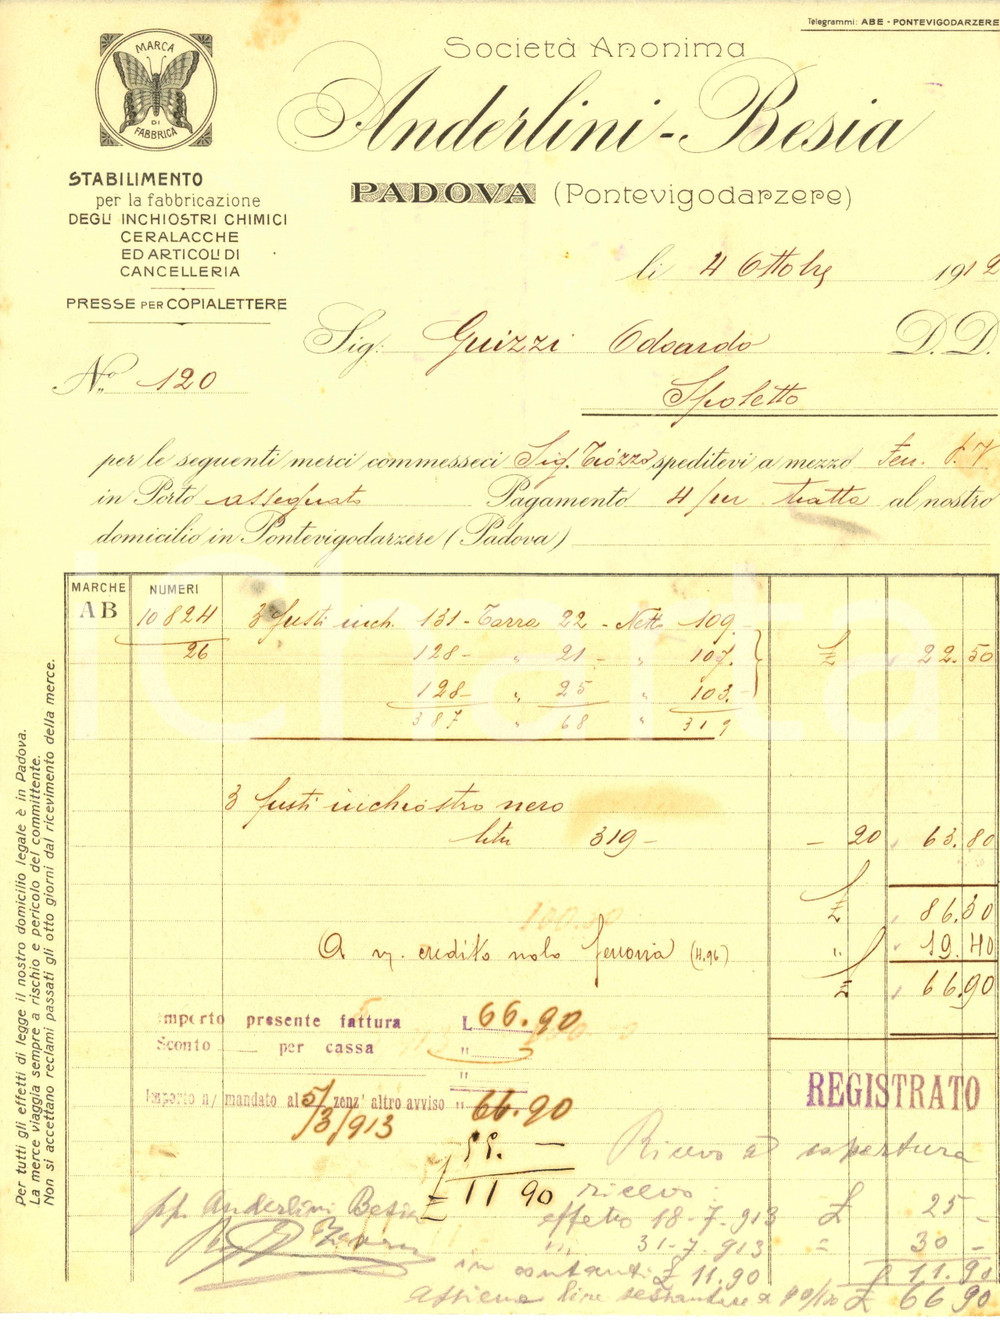 Telegrammi: ABE - PONTEVIGODARZERE
MARCA
DI
FABBRICA
Società Anonima
Anderlini-Besia
PADOVA (Pontevigodarzere)
STABILIMENTO
per la fabbricazione
DEGLI INCHIOSTRI CHIMICI
CERALACCHE
ED ARTICOLI DI
CANCELLERIA
PRESSE PER COPIALETTERE
li 4 Ottobre 1912
Sig: Guizzi Odoardo D. D.
N.º 120
Spoletto
per le seguenti merci commesseci Sig. Tiozzo speditevi a mezzo Ferr. P.V
in Porto assegnato Pagamento 4/m tratta al nostro
domicilio in Pontevigodarzere (Padova)
MARCHE NUMERI
AB 10824 3 fusti inch. 131 - Tarra 22 - Netto 109 -
26 128 - " 21 - " 107. £ 22.50
128 - " 25 " 103 -
387 " 68 " 319
3 fusti inchiostro nero
litri 319 - - 20 63.80
£ 86.30
A v/. credito nolo ferrovia (4.96) " 19.40
£ 66.90
Importo presente fattura L 66.90
Sconto per cassa "
"
Importo n/ mandato al 5/3/913 senz' altro avviso " 66.90
REGISTRATO
55. -
£ 11 90
Ricevo a copertura
pp. Anderlini Besia
ricevo:
effetto 18-7-913 £ 25 -
" 31-7-913 = 30 -
in contanti £ 11.90 £ 11.90
Assieme lire sessantasei e 90/100 £ 66 90
Per tutti gli effetti di legge il nostro domicilio legale è in Padova.
La merce viaggia sempre a rischio e pericolo del committente.
Non si accettano reclami passati gli otto giorni dal ricevimento della merce.
iCharta